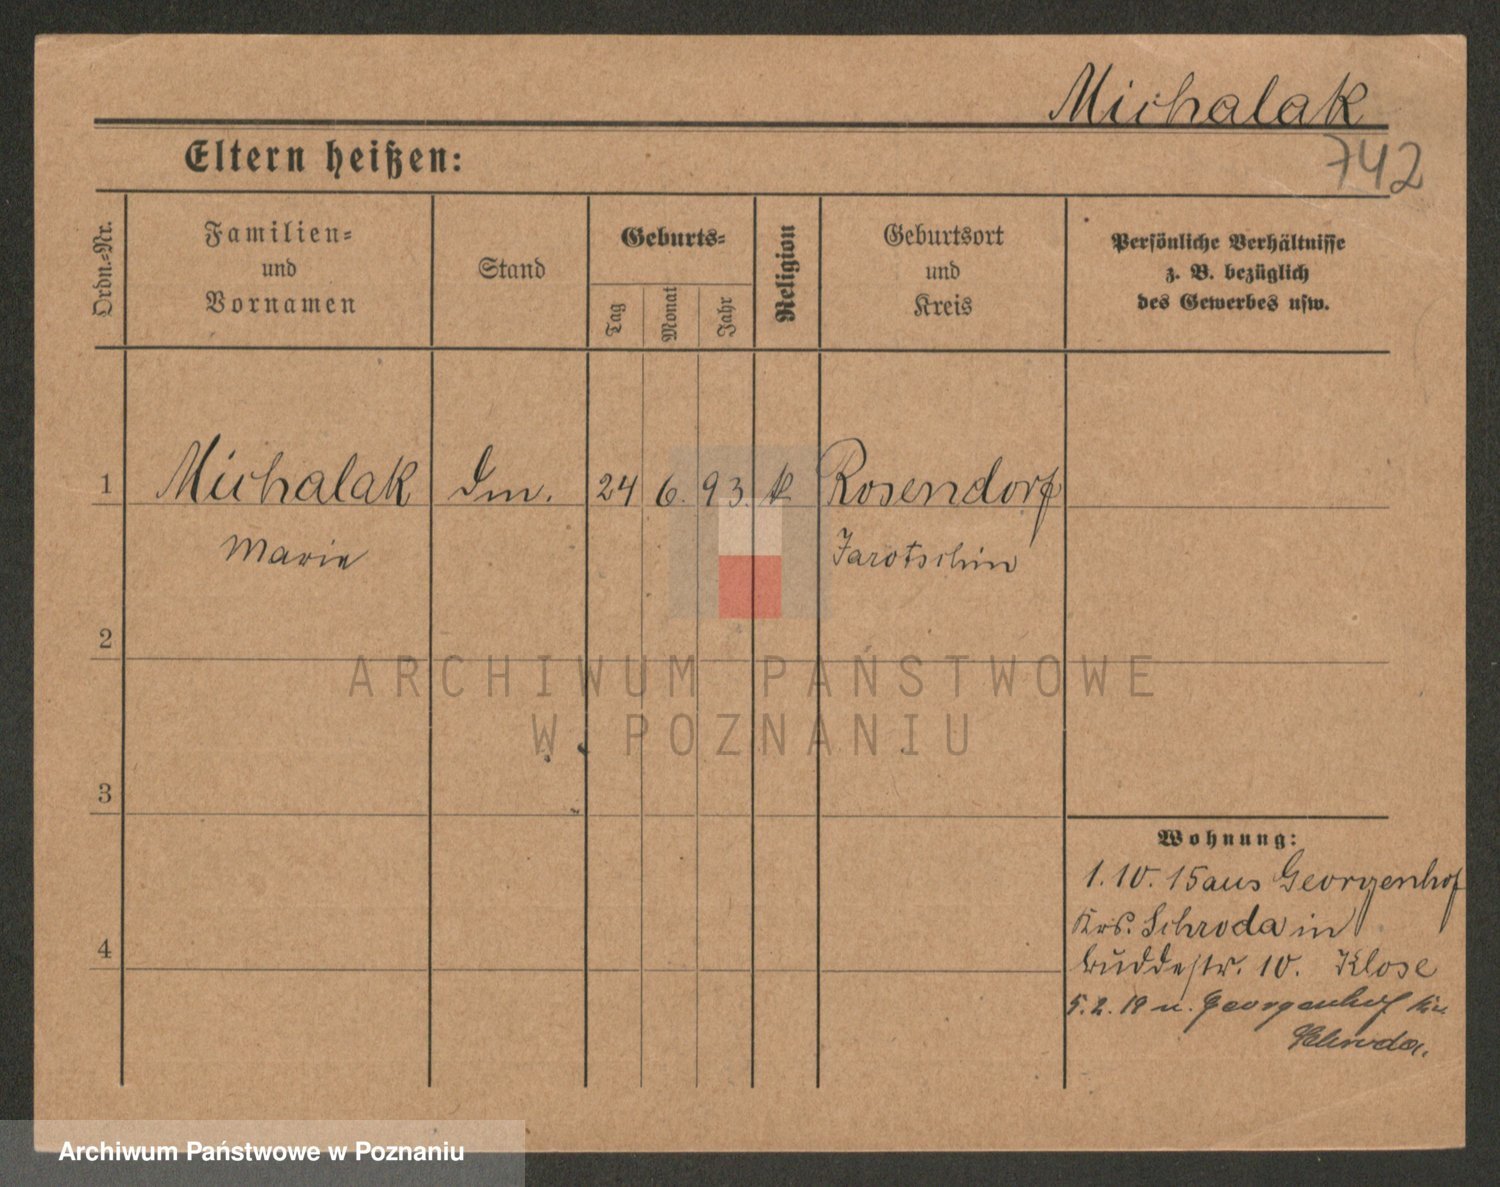 Michalak
742
Eltern heißen:
Ordn.-Nr.
Familien-
und
Vornamen
Stand
Geburts-
Tag
Monat
Jahr
Religion
Geburtsort
und
Kreis
Persönliche Verhältnisse
z. B. bezüglich
des Gewerbes usw.
1 Michalak 24 6. 93. k Rosendorf
Marie Jarotschin
2
ARCHIWUM PAŃSTWOWE
W POZNANIU
3
Wohnung:
1. 10. 15 aus Georgenhof
Krs. Schroda in
Buddestr. 10. Klose
4
5. 2. 19 n. Georgenhof
Schroda.
Archiwum Państwowe w Poznaniu